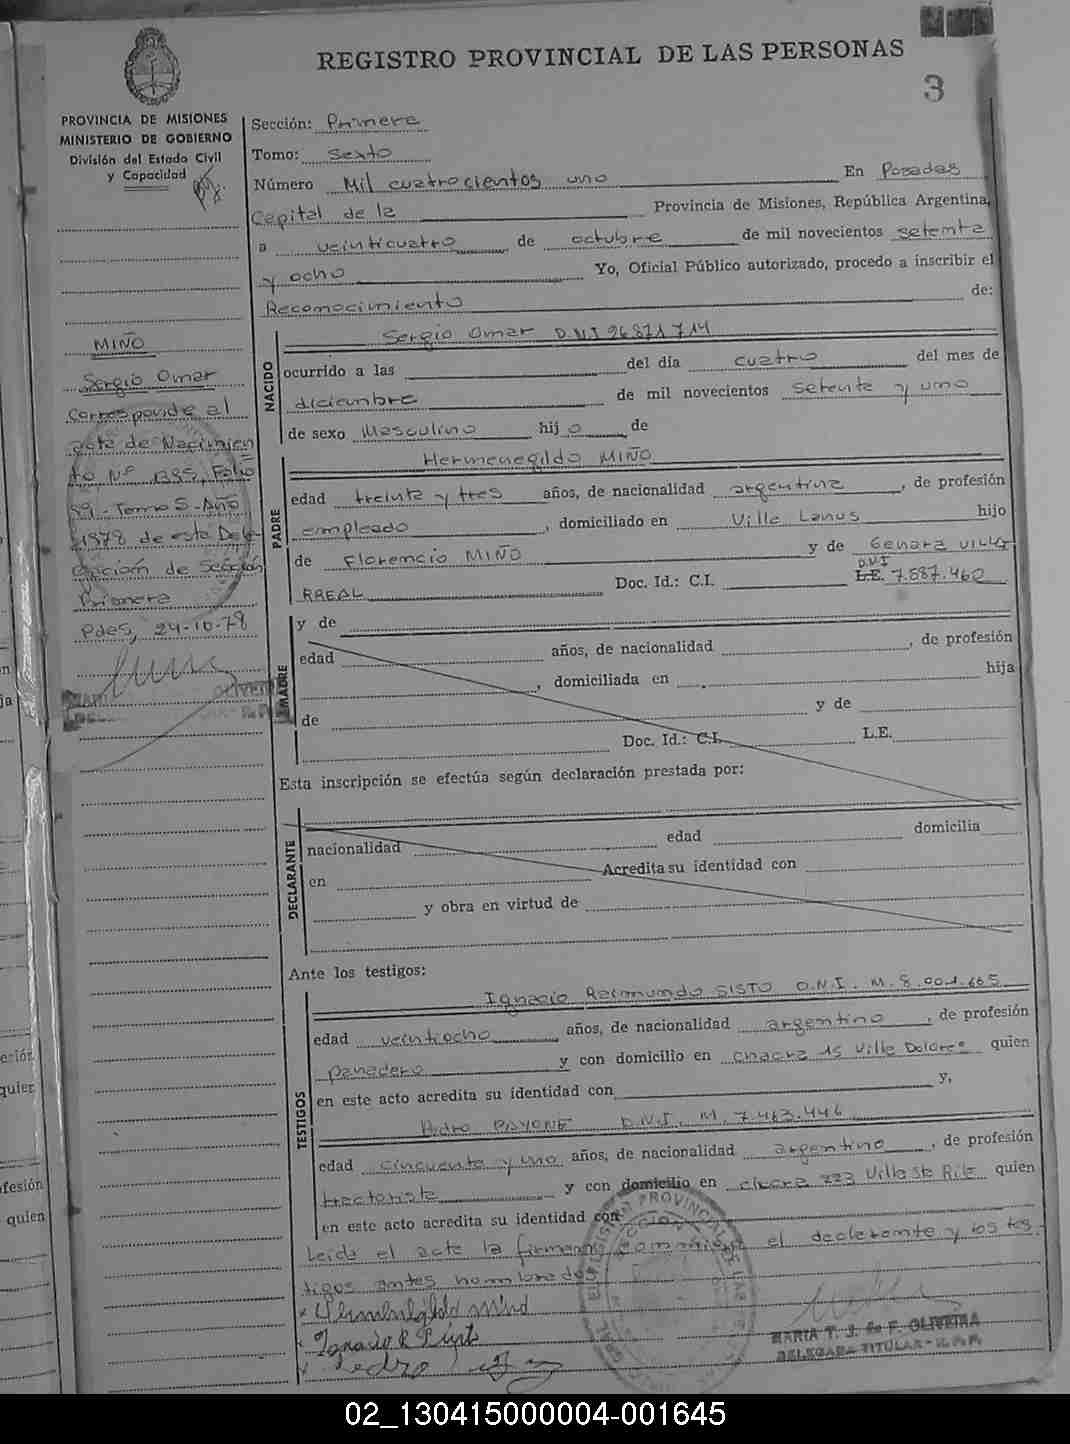 REGISTRO PROVINCIAL DE LAS PERSONAS
3
PROVINCIA DE MISIONES
MINISTERIO DE GOBIERNO
División del Estado Civil
y Capacidad
Sección: Primera
Tomo: Sexto
Número Mil cuatrocientos uno En Posadas
Capital de la Provincia de Misiones, República Argentina,
a veinticuatro de octubre de mil novecientos setenta
y ocho Yo, Oficial Público autorizado, procedo a inscribir el
Reconocimiento de:
MIÑO
Sergio Omar
Corresponde al
acta de Nacimien
to Nº 1395, Folio
89 - Tomo 5 - Año
1978 de esta Dele
gación de Sección
Primera
Pdas, 24-10-78
NACIDO
Sergio Omar D.N.I 26.871.714
ocurrido a las del día cuatro del mes de
diciembre de mil novecientos setenta y uno
de sexo Masculino hijo de
PADRE
Hermenegildo MIÑO
edad treinta y tres años, de nacionalidad argentina, de profesión
empleado, domiciliado en Villa Lanus hijo
de Florencio MIÑO y de Genara VILLA
RREAL Doc. Id.: C.I. L.E. D.N.I 7.587.460
MADRE
y de
edad años, de nacionalidad , de profesión
, domiciliada en hija
de y de
Doc. Id.: C.I. L.E.
Esta inscripción se efectúa según declaración prestada por:
DECLARANTE
nacionalidad edad domicilia
en Acredita su identidad con
y obra en virtud de
Ante los testigos:
TESTIGOS
Ignacio Raimundo SISTO D.N.I. M. 8.001.665
edad veintiocho años, de nacionalidad argentino, de profesión
panadero y con domicilio en chacra 15 Villa Dolores quien
en este acto acredita su identidad con y,
Pedro D.N.I. M. 7.463.446
edad cincuenta y uno años, de nacionalidad argentino, de profesión
tractorista y con domicilio en chacra 223 Villa Sta Rita quien
en este acto acredita su identidad con
Leida el acta la firman conmigo el declarante y los tes-
tigos antes nombrados
Hermenegildo Miño
Ignacio R
Pedro
MARIA T. J. de F. OLIVEIRA
DELEGADA TITULAR - R.P.P.
02_130415000004-001645